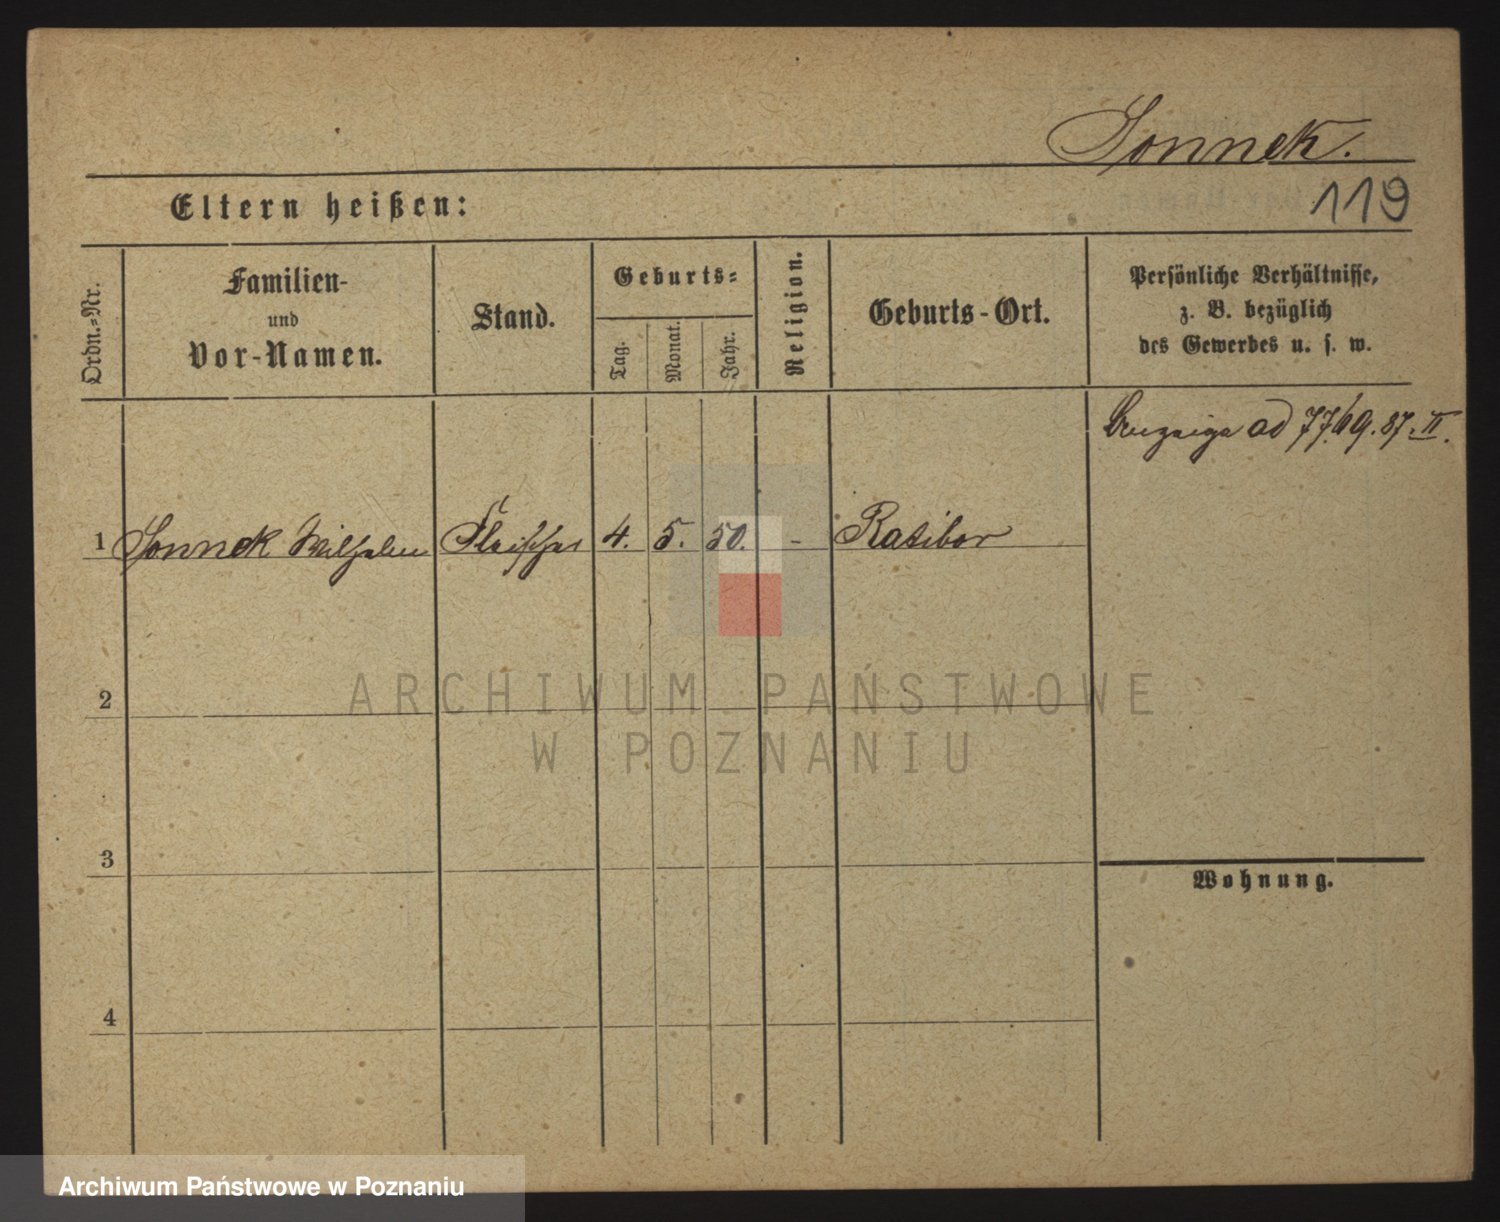 Sonnek.
119
Eltern heißen:
Ordn.-Nr.
Familien-
und
Vor-Namen.
Stand.
Geburts-
Tag.
Monat.
Jahr.
Religion.
Geburts-Ort.
Persönliche Verhältnisse,
z. B. bezüglich
des Gewerbes u. s. w.
ad 77.69.87.II.
1 Sonnek Wilhelm Fleischer 4. 5. 50. - Ratibor
2
3
4
Wohnung.
ARCHIWUM PAŃSTWOWE
W POZNANIU
Archiwum Państwowe w Poznaniu